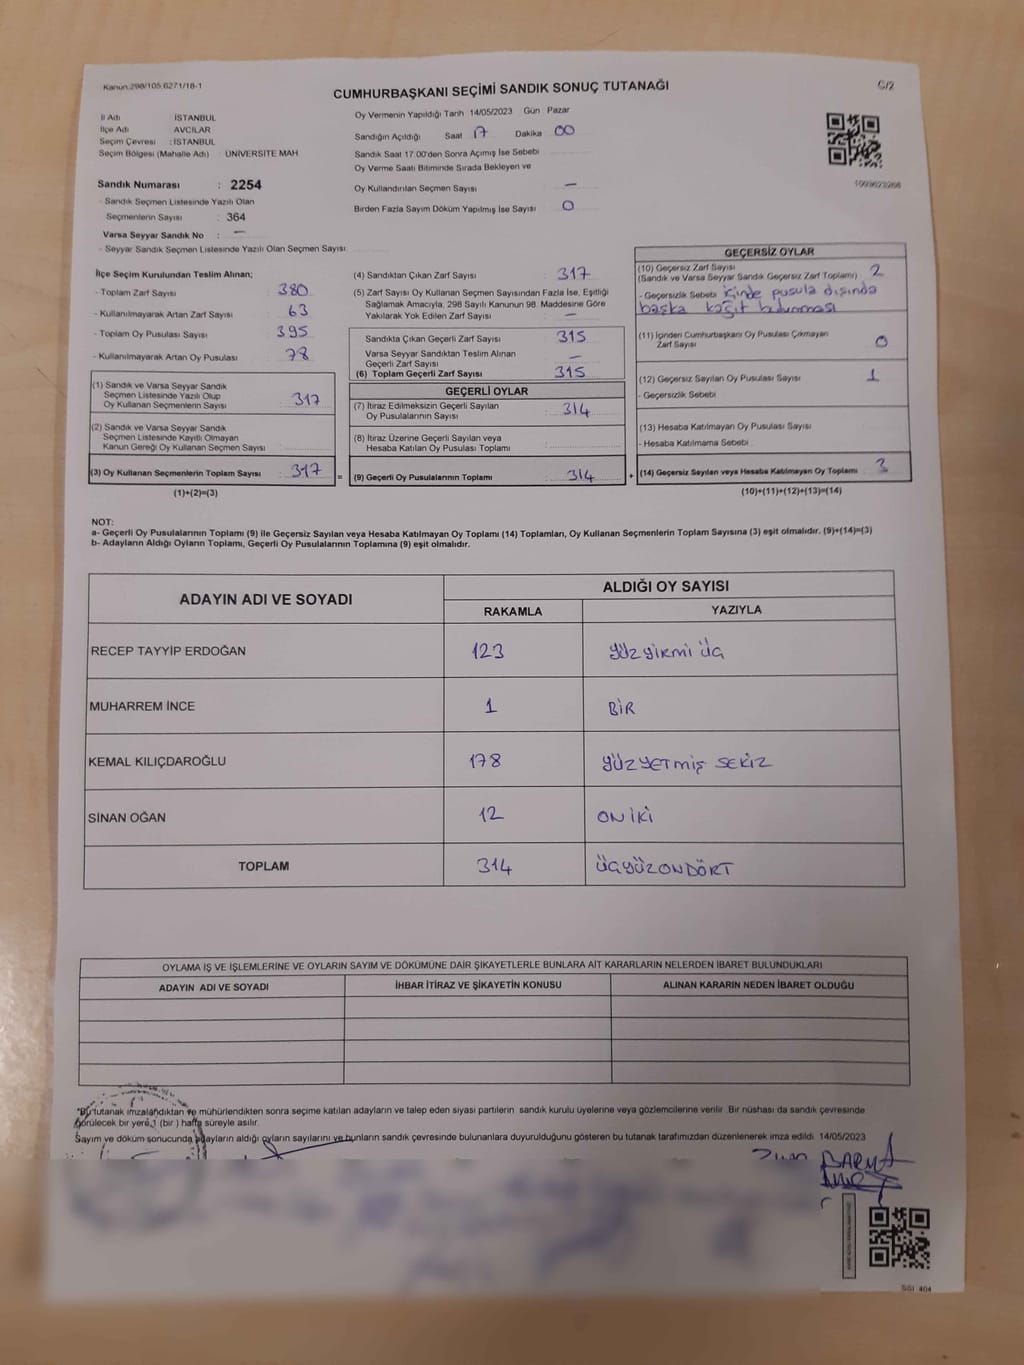 Kanun:298/105,6271/18-1
CUMHURBAŞKANI SEÇİMİ SANDIK SONUÇ TUTANAĞI
C/2
İl Adı : İSTANBUL
İlçe Adı : AVCILAR
Seçim Çevresi : İSTANBUL
Seçim Bölgesi (Mahalle Adı) : ÜNİVERSİTE MAH
Oy Vermenin Yapıldığı Tarih 14/05/2023 Gün Pazar
Sandığın Açıldığı Saat 17 Dakika 00
Sandık Saat 17:00'den Sonra Açımış İse Sebebi
Oy Verme Saati Bitiminde Sırada Bekleyen ve
Oy Kullandırılan Seçmen Sayısı –
Birden Fazla Sayım Döküm Yapılmış İse Sayısı 0
Sandık Numarası : 2254
- Sandık Seçmen Listesinde Yazılı Olan
Seçmenlerin Sayısı : 364
Varsa Seyyar Sandık No : –
- Seyyar Sandık Seçmen Listesinde Yazılı Olan Seçmen Sayısı
İlçe Seçim Kurulundan Teslim Alınan;
- Toplam Zarf Sayısı : 380
- Kullanılmayarak Artan Zarf Sayısı : 63
- Toplam Oy Pusulası Sayısı : 395
- Kullanılmayarak Artan Oy Pusulası : 78
(1) Sandık ve Varsa Seyyar Sandık
Seçmen Listesinde Yazılı Olup
Oy Kullanan Seçmenlerin Sayısı : 317
(2) Sandık ve Varsa Seyyar Sandık
Seçmen Listesinde Kayıtlı Olmayan
Kanun Gereği Oy Kullanan Seçmen Sayısı :
(3) Oy Kullanan Seçmenlerin Toplam Sayısı : 317 =
(1)+(2)=(3)
(4) Sandıktan Çıkan Zarf Sayısı : 317
(5) Zarf Sayısı Oy Kullanan Seçmen Sayısından Fazla İse, Eşitliği
Sağlamak Amacıyla, 298 Sayılı Kanunun 98. Maddesine Göre
Yakılarak Yok Edilen Zarf Sayısı : –
Sandıkta Çıkan Geçerli Zarf Sayısı : 315
Varsa Seyyar Sandıktan Teslim Alınan
Geçerli Zarf Sayısı : –
(6) Toplam Geçerli Zarf Sayısı : 315
GEÇERLİ OYLAR
(7) İtiraz Edilmeksizin Geçerli Sayılan
Oy Pusulalarının Sayısı : 314
(8) İtiraz Üzerine Geçerli Sayılan veya
Hesaba Katılan Oy Pusulası Toplamı :
(9) Geçerli Oy Pusulalarının Toplamı : 314 +
GEÇERSİZ OYLAR
(10) Geçersiz Zarf Sayısı
(Sandık ve Varsa Seyyar Sandık Geçersiz Zarf Toplamı) 2
- Geçersizlik Sebebi İçinde pusula dışında
başka kağıt bulunması
(11) İçinden Cumhurbaşkanı Oy Pusulası Çıkmayan
Zarf Sayısı 0
(12) Geçersiz Sayılan Oy Pusulası Sayısı : 1
- Geçersizlik Sebebi
(13) Hesaba Katılmayan Oy Pusulası Sayısı
- Hesaba Katılmama Sebebi
(14) Geçersiz Sayılan veya Hesaba Katılmayan Oy Toplamı : 3
(10)+(11)+(12)+(13)=(14)
NOT:
a- Geçerli Oy Pusulalarının Toplamı (9) ile Geçersiz Sayılan veya Hesaba Katılmayan Oy Toplamı (14) Toplamları, Oy Kullanan Seçmenlerin Toplam Sayısına (3) eşit olmalıdır. (9)+(14)=(3)
b- Adayların Aldığı Oyların Toplamı, Geçerli Oy Pusulalarının Toplamına (9) eşit olmalıdır.
ADAYIN ADI VE SOYADI
ALDIĞI OY SAYISI
RAKAMLA YAZIYLA
RECEP TAYYİP ERDOĞAN 123 yüzyirmi üç
MUHARREM İNCE 1 BİR
KEMAL KILIÇDAROĞLU 178 yüzyetmiş SEKİZ
SİNAN OĞAN 12 ONİKİ
TOPLAM 314 ÜÇYÜZONDÖRT
OYLAMA İŞ VE İŞLEMLERİNE VE OYLARIN SAYIM VE DÖKÜMÜNE DAİR ŞİKAYETLERLE BUNLARA AİT KARARLARIN NELERDEN İBARET BULUNDUKLARI
ADAYIN ADI VE SOYADI İHBAR İTİRAZ VE ŞİKAYETİN KONUSU ALINAN KARARIN NEDEN İBARET OLDUĞU
"Bu tutanak imzalandıktan ve mühürlendikten sonra seçime katılan adayların ve talep eden siyasi partilerin sandık kurulu üyelerine veya gözlemcilerine verilir. Bir nüshası da sandık çevresinde
görülecek bir yere 1 (bir ) hafta süreyle asılır.
Sayım ve döküm sonucunda adayların aldığı oyların sayılarını ve bunların sandık çevresinde bulunanlara duyurulduğunu gösteren bu tutanak tarafımızdan düzenlenerek imza edildi 14/05/2023